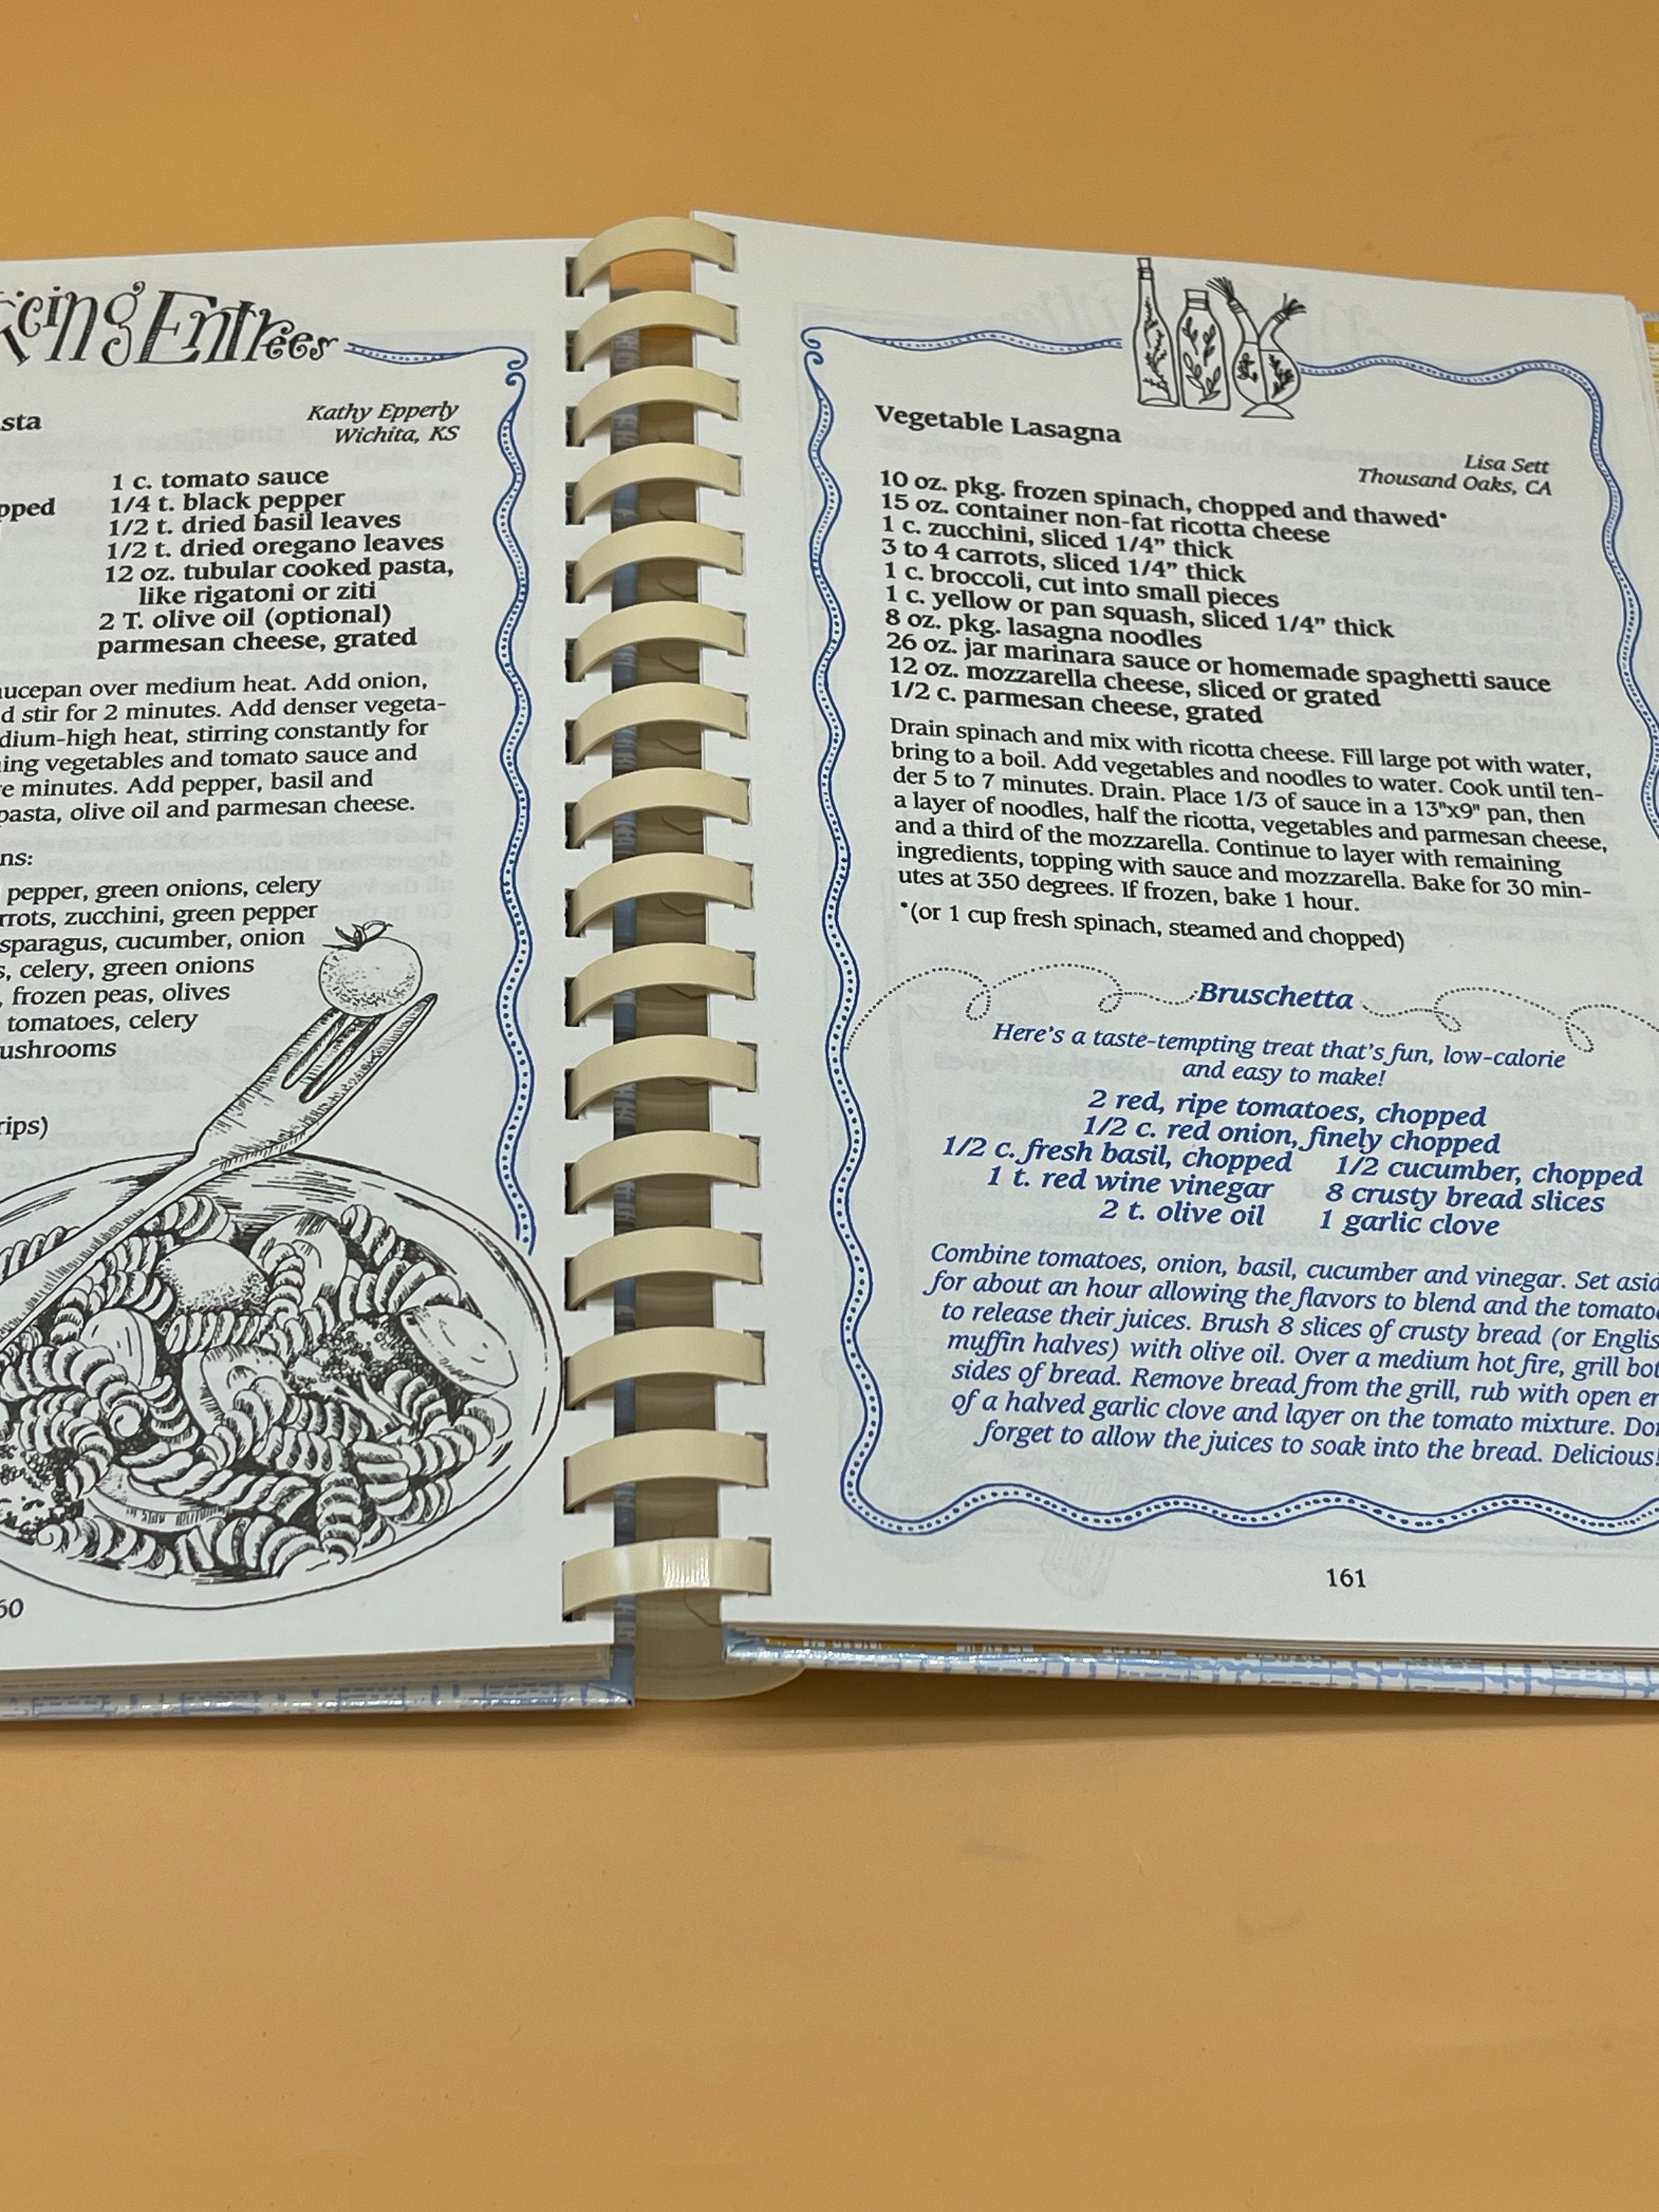 Entrées
Kathy Epperly
Wichita, KS
1 c. tomato sauce
1/4 t. black pepper
1/2 t. dried basil leaves
1/2 t. dried oregano leaves
12 oz. tubular cooked pasta,
like rigatoni or ziti
2 T. olive oil (optional)
parmesan cheese, grated
over medium heat. Add onion,
stir for 2 minutes. Add denser vegeta-
heat, stirring constantly for
vegetables and tomato sauce and
minutes. Add pepper, basil and
pasta, olive oil and parmesan cheese.
pepper, green onions, celery
zucchini, green pepper
cucumber, onion
celery, green onions
frozen peas, olives
tomatoes, celery
Vegetable Lasagna
Lisa Sett
Thousand Oaks, CA
10 oz. pkg. frozen spinach, chopped and thawed*
15 oz. container non-fat ricotta cheese
1 c. zucchini, sliced 1/4" thick
3 to 4 carrots, sliced 1/4" thick
1 c. broccoli, cut into small pieces
1 c. yellow or pan squash, sliced 1/4" thick
8 oz. pkg. lasagna noodles
26 oz. jar marinara sauce or homemade spaghetti sauce
12 oz. mozzarella cheese, sliced or grated
1/2 c. parmesan cheese, grated
Drain spinach and mix with ricotta cheese. Fill large pot with water,
bring to a boil. Add vegetables and noodles to water. Cook until ten-
der 5 to 7 minutes. Drain. Place 1/3 of sauce in a 13"x9" pan, then
a layer of noodles, half the ricotta, vegetables and parmesan cheese,
and a third of the mozzarella. Continue to layer with remaining
ingredients, topping with sauce and mozzarella. Bake for 30 min-
utes at 350 degrees. If frozen, bake 1 hour.
*(or 1 cup fresh spinach, steamed and chopped)
Bruschetta
Here's a taste-tempting treat that's fun, low-calorie
and easy to make!
2 red, ripe tomatoes, chopped
1/2 c. red onion, finely chopped
1/2 c. fresh basil, chopped 1/2 cucumber, chopped
1 t. red wine vinegar 8 crusty bread slices
2 t. olive oil 1 garlic clove
Combine tomatoes, onion, basil, cucumber and vinegar. Set
for about an hour allowing the flavors to blend and the
to release their juices. Brush 8 slices of crusty bread (or
muffin halves) with olive oil. Over a medium hot fire, grill
sides of bread. Remove bread from the grill, rub with open
of a halved garlic clove and layer on the tomato mixture.
forget to allow the juices to soak into the bread. Delicious!
161